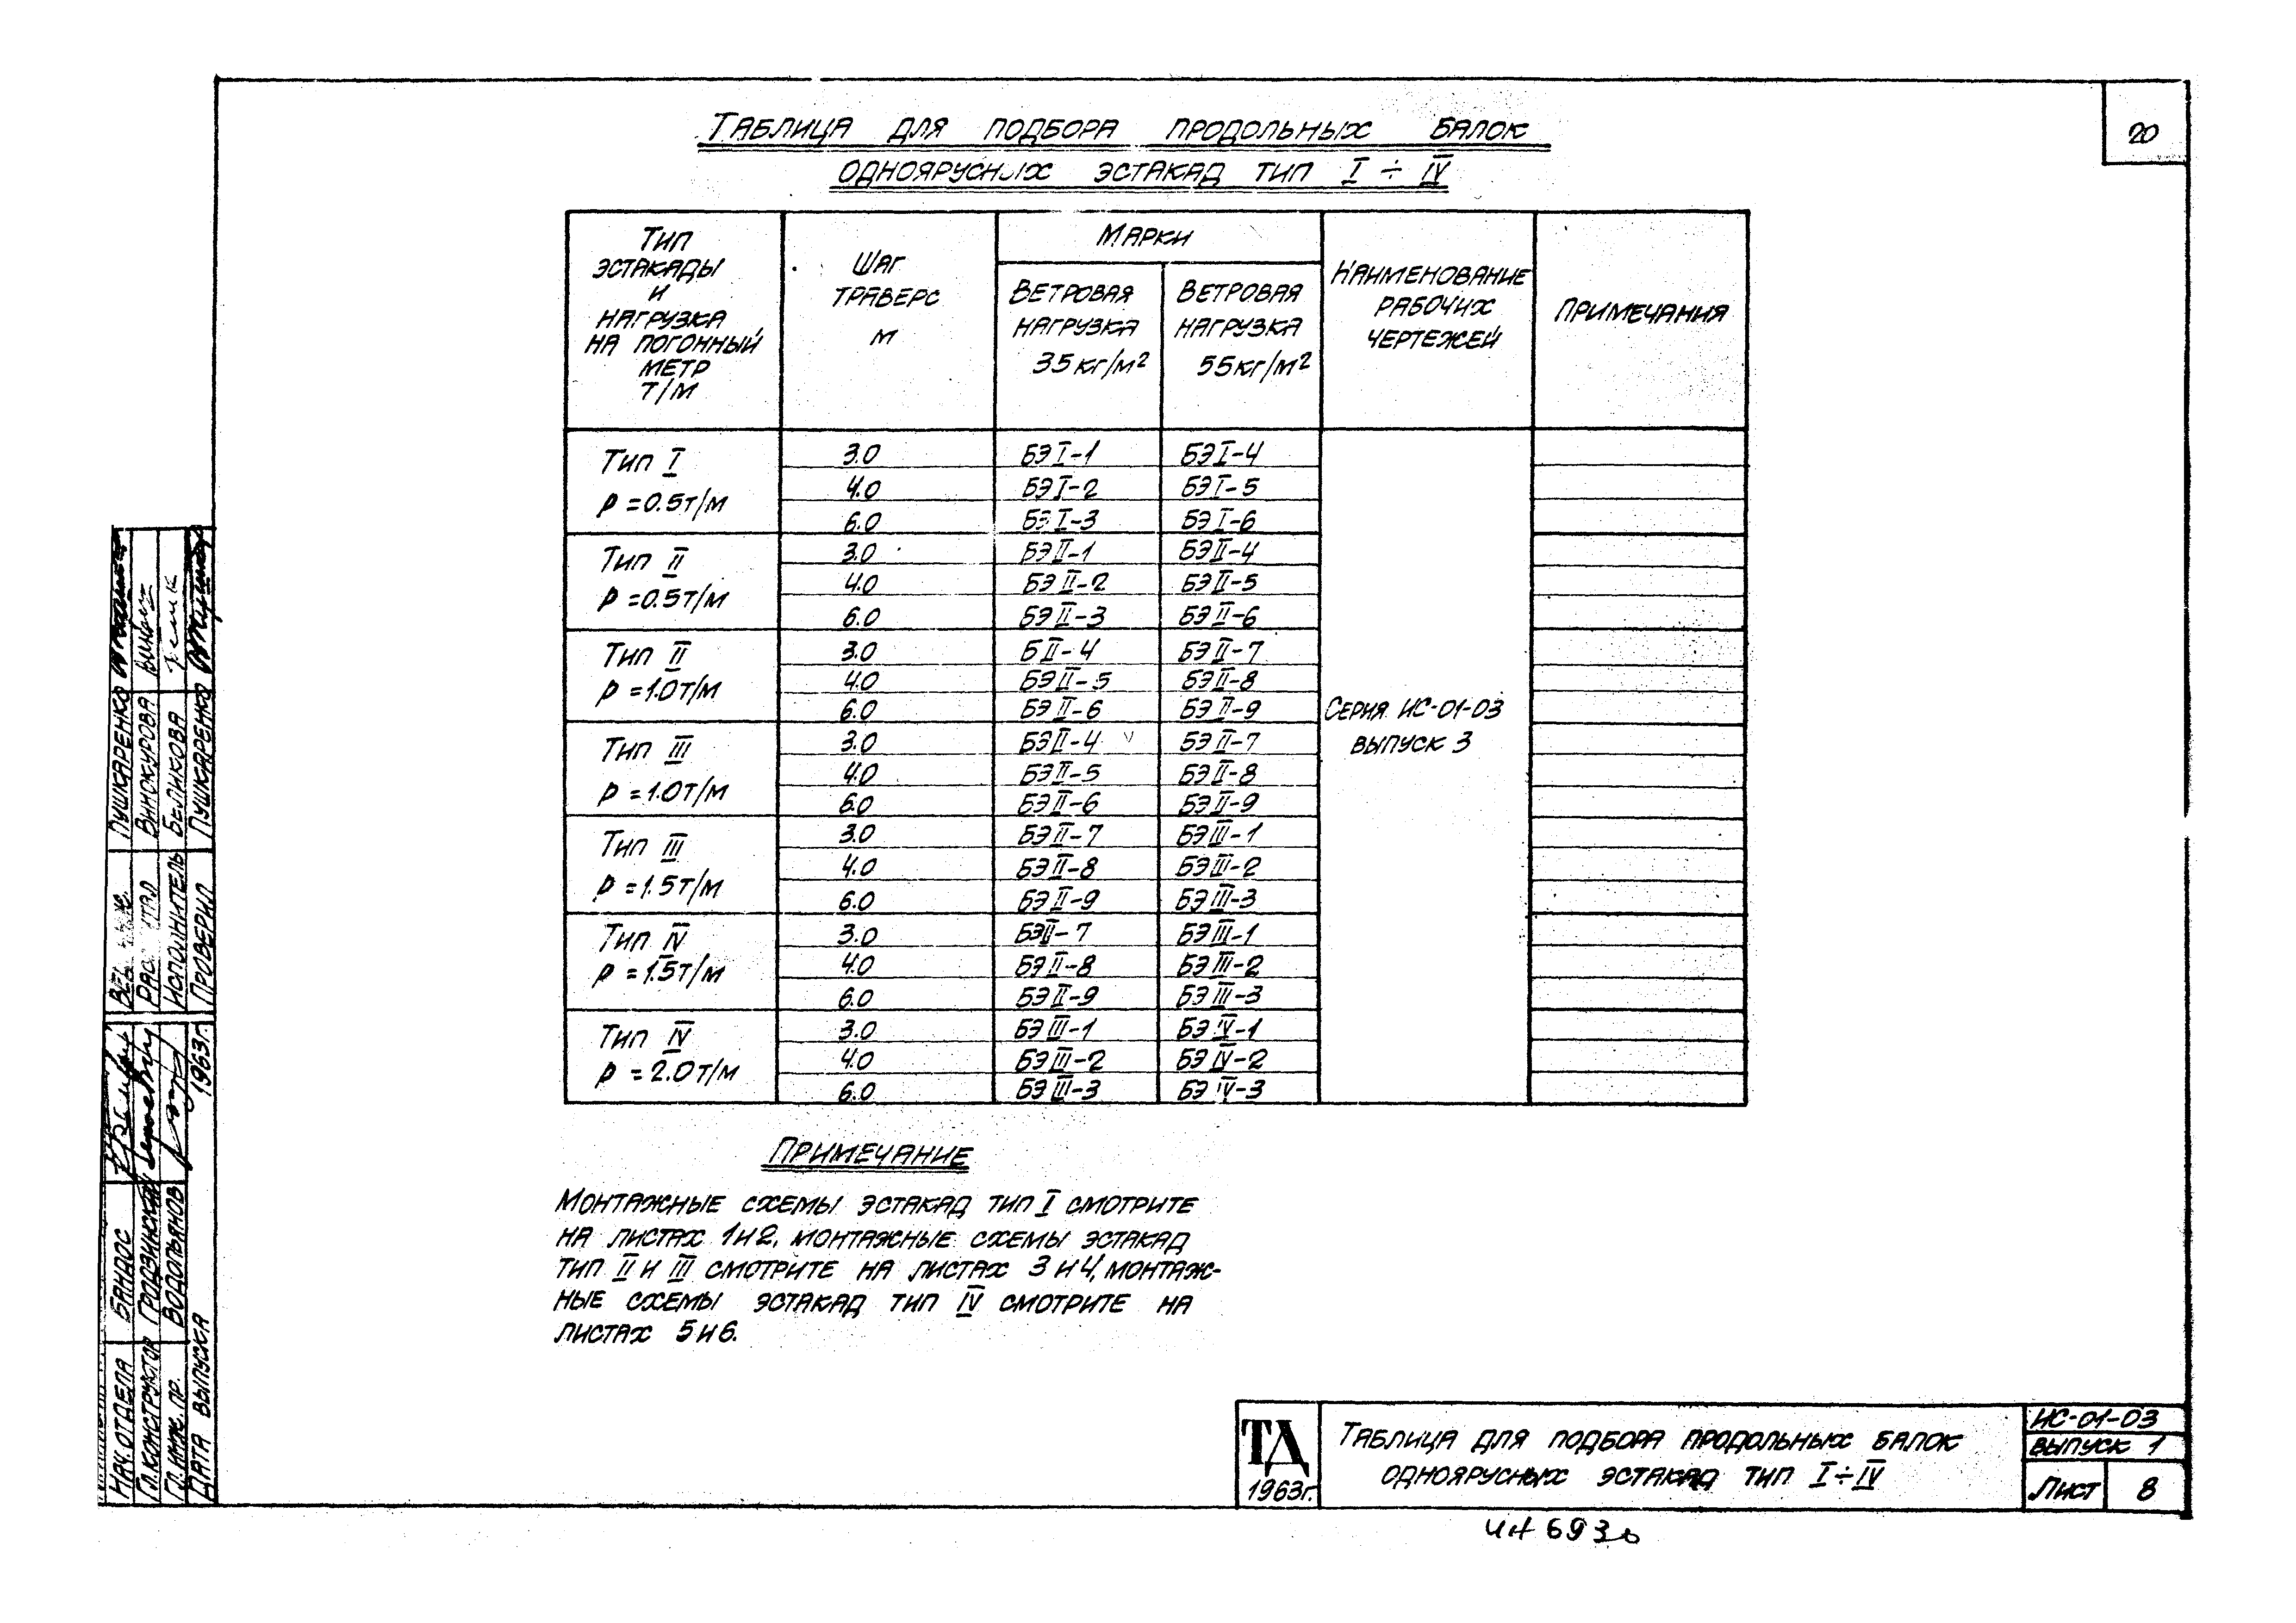 20
ТАБЛИЦА ДЛЯ ПОДБОРА ПРОДОЛЬНЫХ БАЛОК
ОДНОЯРУСНЫХ ЭСТАКАД ТИП I ÷ IV
ТИП ЭСТАКАДЫ И НАГРУЗКА НА ПОГОННЫЙ МЕТР Т/М
ШАГ ТРАВЕРС М
МАРКИ
ВЕТРОВАЯ НАГРУЗКА 35 КГ/М²
ВЕТРОВАЯ НАГРУЗКА 55 КГ/М²
НАИМЕНОВАНИЕ РАБОЧИХ ЧЕРТЕЖЕЙ
ПРИМЕЧАНИЯ
ТИП I
P = 0.5 Т/М
3.0 БЭ I-1 БЭ I-4
4.0 БЭ I-2 БЭ I-5
6.0 БЭ I-3 БЭ I-6
ТИП II
P = 0.5 Т/М
3.0 БЭ II-1 БЭ II-4
4.0 БЭ II-2 БЭ II-5
6.0 БЭ II-3 БЭ II-6
ТИП II
P = 1.0 Т/М
3.0 Б II-4 БЭ II-7
4.0 БЭ II-5 БЭ II-8
6.0 БЭ II-6 БЭ II-9
СЕРИЯ ИС-01-03
ВЫПУСК 3
ТИП III
P = 1.0 Т/М
3.0 БЭ II-4 БЭ II-7
4.0 БЭ II-5 БЭ II-8
6.0 БЭ II-6 БЭ II-9
ТИП III
P = 1.5 Т/М
3.0 БЭ II-7 БЭ III-1
4.0 БЭ II-8 БЭ III-2
6.0 БЭ II-9 БЭ III-3
ТИП IV
P = 1.5 Т/М
3.0 БЭ II-7 БЭ III-1
4.0 БЭ II-8 БЭ III-2
6.0 БЭ II-9 БЭ III-3
ТИП IV
P = 2.0 Т/М
3.0 БЭ III-1 БЭ IV-1
4.0 БЭ III-2 БЭ IV-2
6.0 БЭ III-3 БЭ IV-3
ПРИМЕЧАНИЕ
МОНТАЖНЫЕ СХЕМЫ ЭСТАКАД ТИП I СМОТРИТЕ
НА ЛИСТАХ 1 И 2, МОНТАЖНЫЕ СХЕМЫ ЭСТАКАД
ТИП II И III СМОТРИТЕ НА ЛИСТАХ 3 И 4, МОНТАЖ-
НЫЕ СХЕМЫ ЭСТАКАД ТИП IV СМОТРИТЕ НА
ЛИСТАХ 5 И 6.
НАЧ. ОТДЕЛА БАНДОС
ГЛ. КОНСТРУКТОР ГРОДЗИНСКИЙ
ГЛ. ИНЖ. ПР. ВОДОПЬЯНОВ
ДАТА ВЫПУСКА 1963г.
ПУШКАРЕНКО
ВИНОКУРОВА
ИСПОЛНИТЕЛЬ БЕЛИКОВА
ПРОВЕРИЛ ПУШКАРЕНКО
ТД
1963г.
ТАБЛИЦА ДЛЯ ПОДБОРА ПРОДОЛЬНЫХ БАЛОК
ОДНОЯРУСНЫХ ЭСТАКАД ТИП I ÷ IV
ИС-01-03
ВЫПУСК 1
ЛИСТ 8